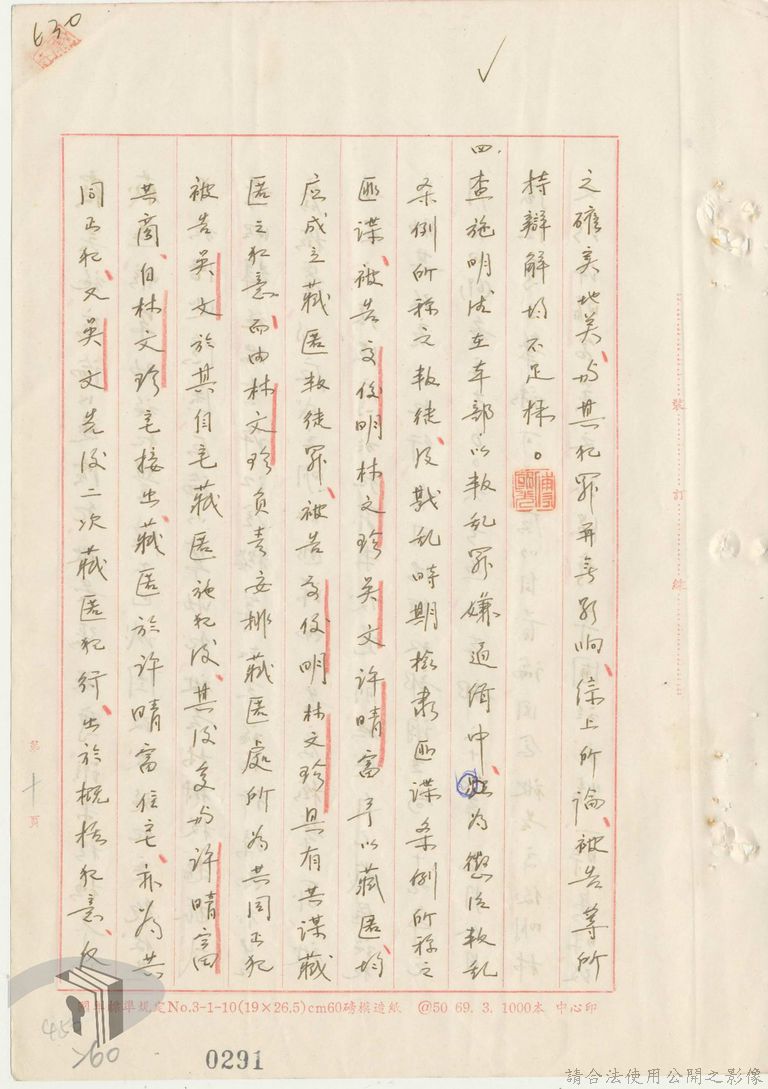 630
之確実地奌、与其犯罪并無影响、綜上所論、被告等所
持辯解均不足採。
四、查施明德在本部以叛乱罪嫌通緝中、为懲治叛乱
条例所称之叛徒、及戡乱時期檢肅匪諜条例所称之
匪諜、被告高俊明林文珍吳文許晴富予以藏匿、均
应成立藏匿叛徒罪、被告高俊明林文珍具有共謀藏
匿之犯意、而由林文珍負責安排藏匿處所为共同正犯
被告吳文於其自宅藏匿施犯後、其後与許晴富
共商、自林文珍宅接出、藏匿於許晴富住宅、亦为共
同正犯、又吳文先後二次藏匿犯行、出於概括犯意、
裝 訂 線
第十頁
國軍標準規定No.3-1-10(19×26.5)cm60磅模造紙 @50 69. 3. 1000本 中心印
0291
760
請合法使用公開之影像